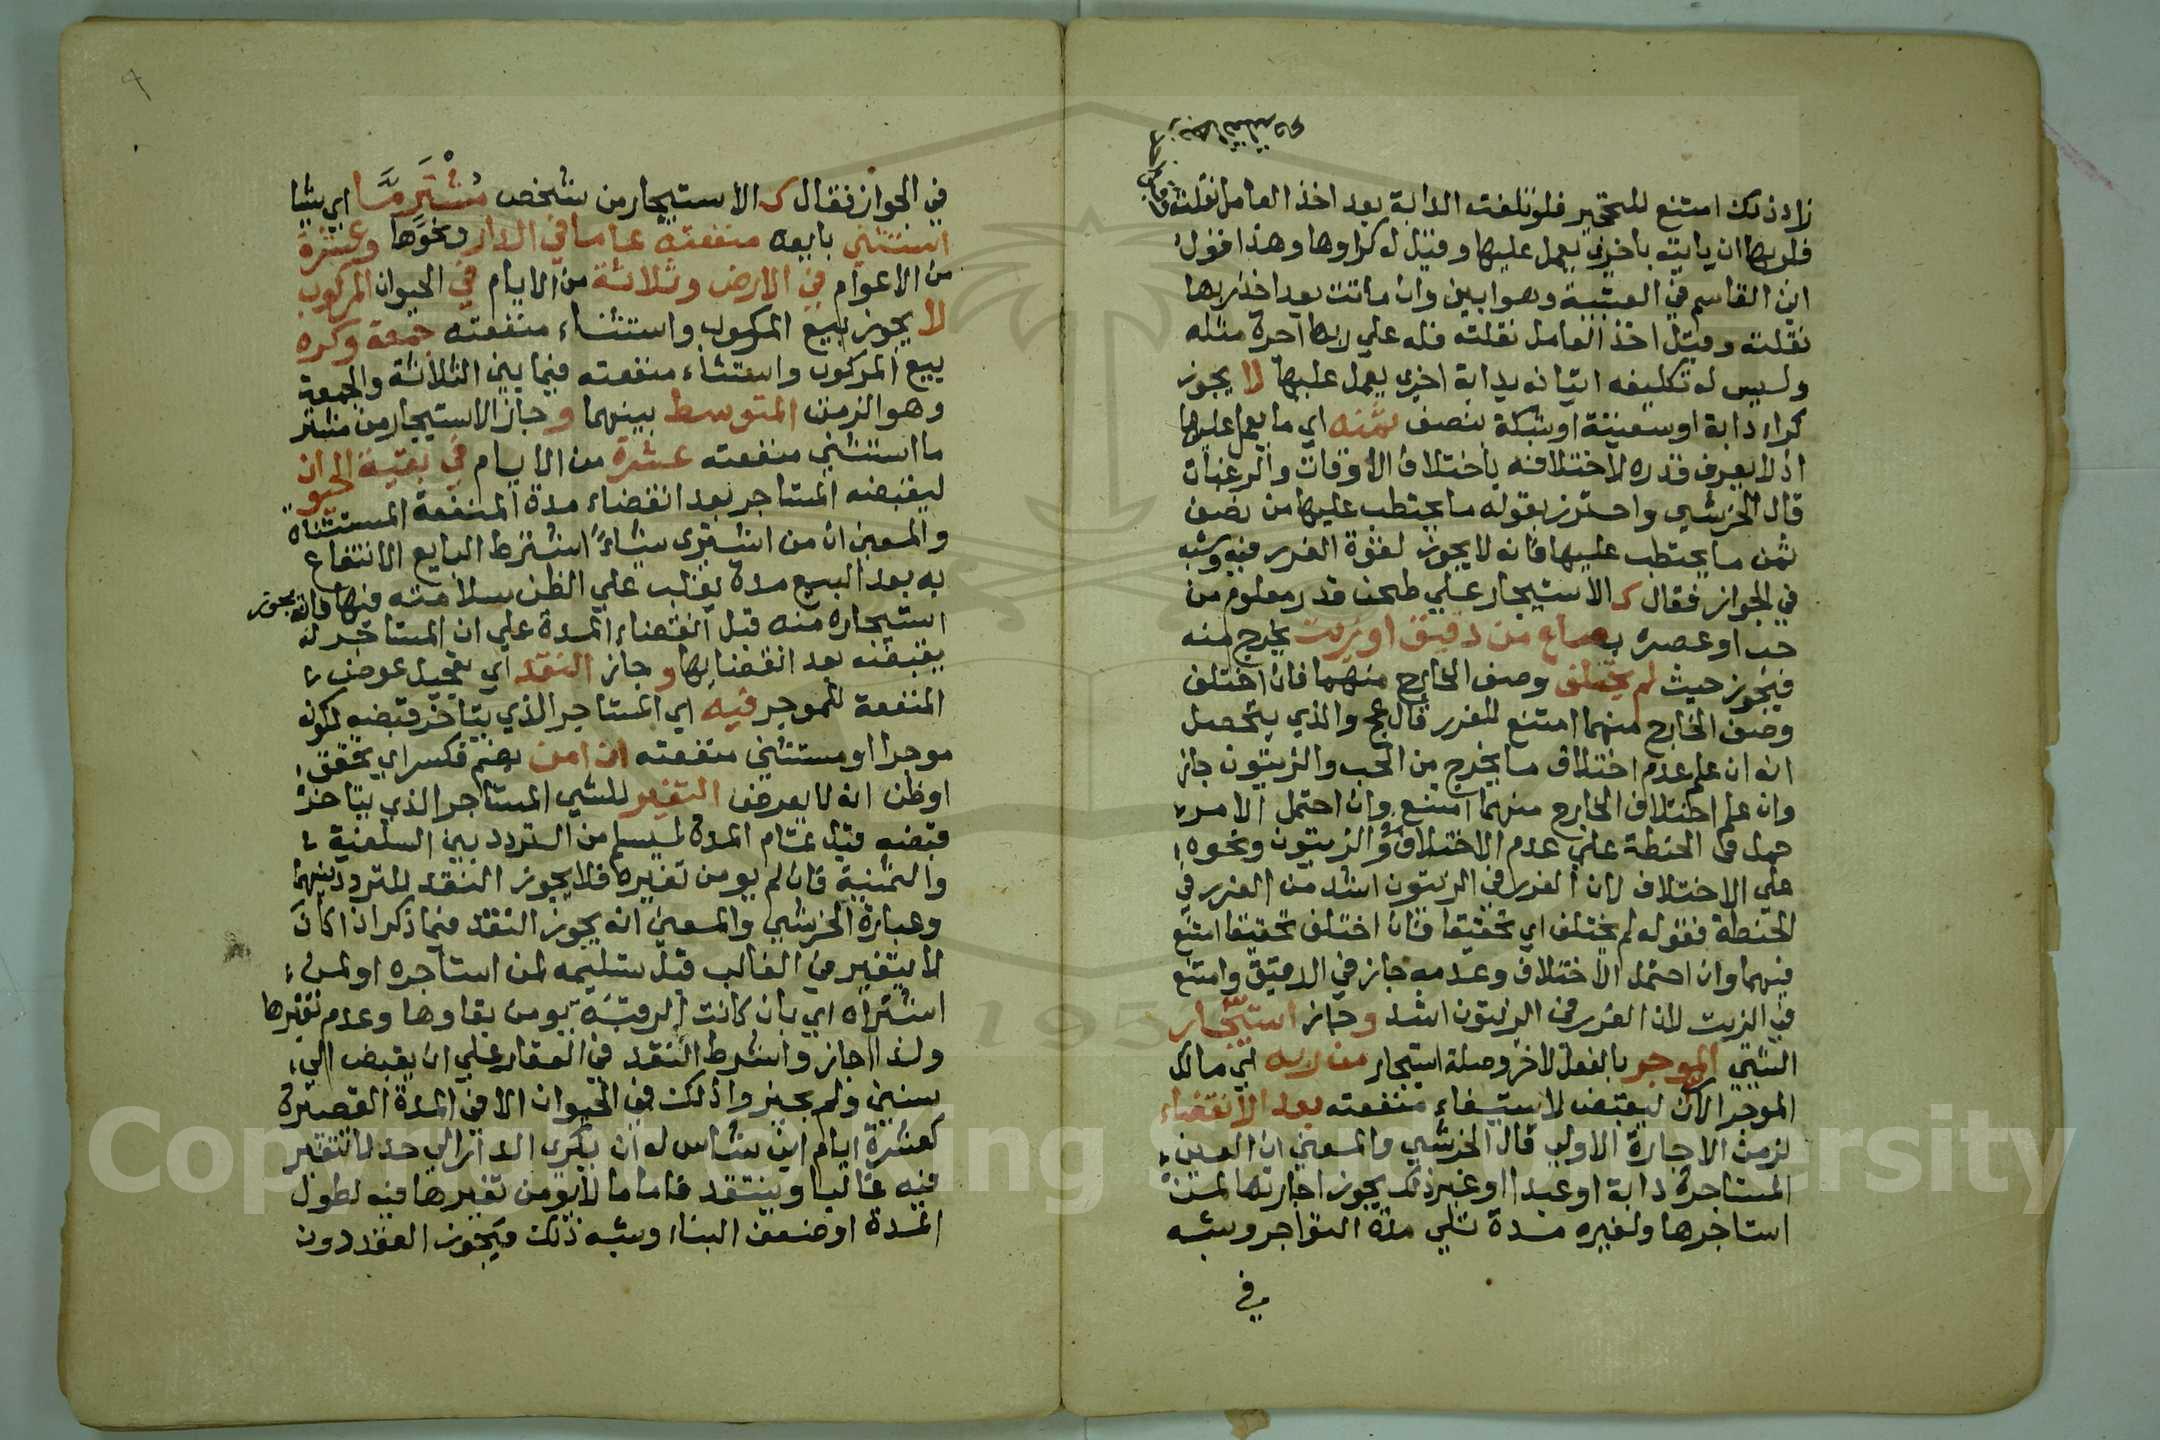 زاد ذلك امتنع للتحجير فلو تلفت الدابة بعد اخذ العامل نقلته
فلربها ان ياتيه باخري يعمل عليها وقيل له كراوها وهذا قول
ابن القاسم في العتبية وهو ابين وان ماتت بعد اخذ ربها
نقلته وقبل اخذ العامل نقلته فله علي ربها اجرة مثله
وليس له تكليفه اتيانه بدابة اخري يعمل عليها لا يجوز
كراء دابة او سفينة او شبكة بنصف ثمنه اي ما يعمل عليها
اذ لا يعرف قدره لاختلافه باختلاف الاوقات والرغبات
قال الخرشي واحترز بقوله ما يحتطب عليها من نصف
ثمن ما يحتطب عليها فانه لا يجوز لقوة الغرر فيه وشبه
في الجواز فقال كـ الاستيجار علي طحن قدر معلوم من
حب او عصره بصاع من دقيق او زيت يخرج منه
فيجوز حيث لم يختلف وصف الخارج منهما فان اختلف
وصف الخارج منهما امتنع للغرر قال عج والذي يتحصل
انه ان علم عدم اختلاف ما يخرج من الحب والزيتون جاز
وان علم اختلاف الخارج منهما امتنع وان احتمل الامر
حمل في الحنطة علي عدم الاختلاف والزيتون ونحوه
علي الاختلاف لان الغرر في الزيتون اشد من الغرر في
الحنطة فقوله لم يختلف اي تحقيقا فان اختلف تحقيقا امتنع
فيهما وان احتمل الاختلاف وعدمه جاز في الدقيق وامتنع
في الزيت لان الغرر في الزيتون اشد وجاز استيجار
الشي الموجر بالفعل لاخر وصلة استيجار من ربه اي مالك
الموجر الان ليقبض لاستيفاء منفعته بعد الانقضاء
لزمن الاجارة الاولي قال الخرشي والمعني ان العين
المستاجرة دابة او عبدا او غير ذلك يجوز اجارتها لمن
استاجرها ولغيره مدة تلي مدة التواجر وشبه
في
في الجواز فقال كـ الاستيجار من شخص مُشْتَرٍ مَّا اي شيا
استثني بايعه منفعته عاما في الدار ونحوها وعشرة
من الاعوام في الارض وثلاثة من الايام في الحيوان المركوب
لا يجوز بيع المركوب واستثناء منفعته جمعة وكره
بيع المركوب واستثناء منفعته فيما بين الثلاثة والجمعة
وهو الزمن المتوسط بينهما و جاز الاستيجار من مشتر
ما استثني منفعته عشرة من الايام في بقية الحيوان
ليقبضه المستاجر بعد انقضاء مدة المنفعة المستثناة
والمعني ان من اشتري شياً اشترط البايع الانتفاع
به بعد البيع مدة يغلب علي الظن سلامته فيها فانه يجوز
استيجاره منه قبل انقضاء المدة علي ان المستاجر له
يقبضه بعد انقضايها و جاز النقد اي تعجيل عوض
المنفعة للموجر فيه اي المستاجر الذي يتاخر قبضه لكونه
موجرا او مستثني منفعته ان امن بضم فكسر اي تحقق
او ظن انه لا يعرض التغير للشي المستاجر الذي يتاخر
قبضه قبل تمام المدة ليسلم من التردد بين السلفية
والثمنية فان لم يومن تغيره فلا يجوز النقد للتردد بينهما
وعبارة الخرشي والمعني انه يجوز النقد فيما ذكر اذا كان
لا يتغير في الغالب قبل تسليمه لمن استاجره او لمن
اشتراه اي بان كانت الرقبة يومن بقاوها وعدم تغيرها
ولذا اجازوا شرط النقد في العقار علي ان يقبض الي
سنين ولم يجيزوا ذلك في الحيوان الا في المدة القصيرة
كعشرة ايام ابن شاس له ان يكري الدار الي حد لا تتغير
فيه غالبا وينتقد فاما ما لا يومن تغيرها فيه لطول
المدة او ضعف البناء وشبه ذلك فيجوز العقد دون
Copyright © King Saud University
1957